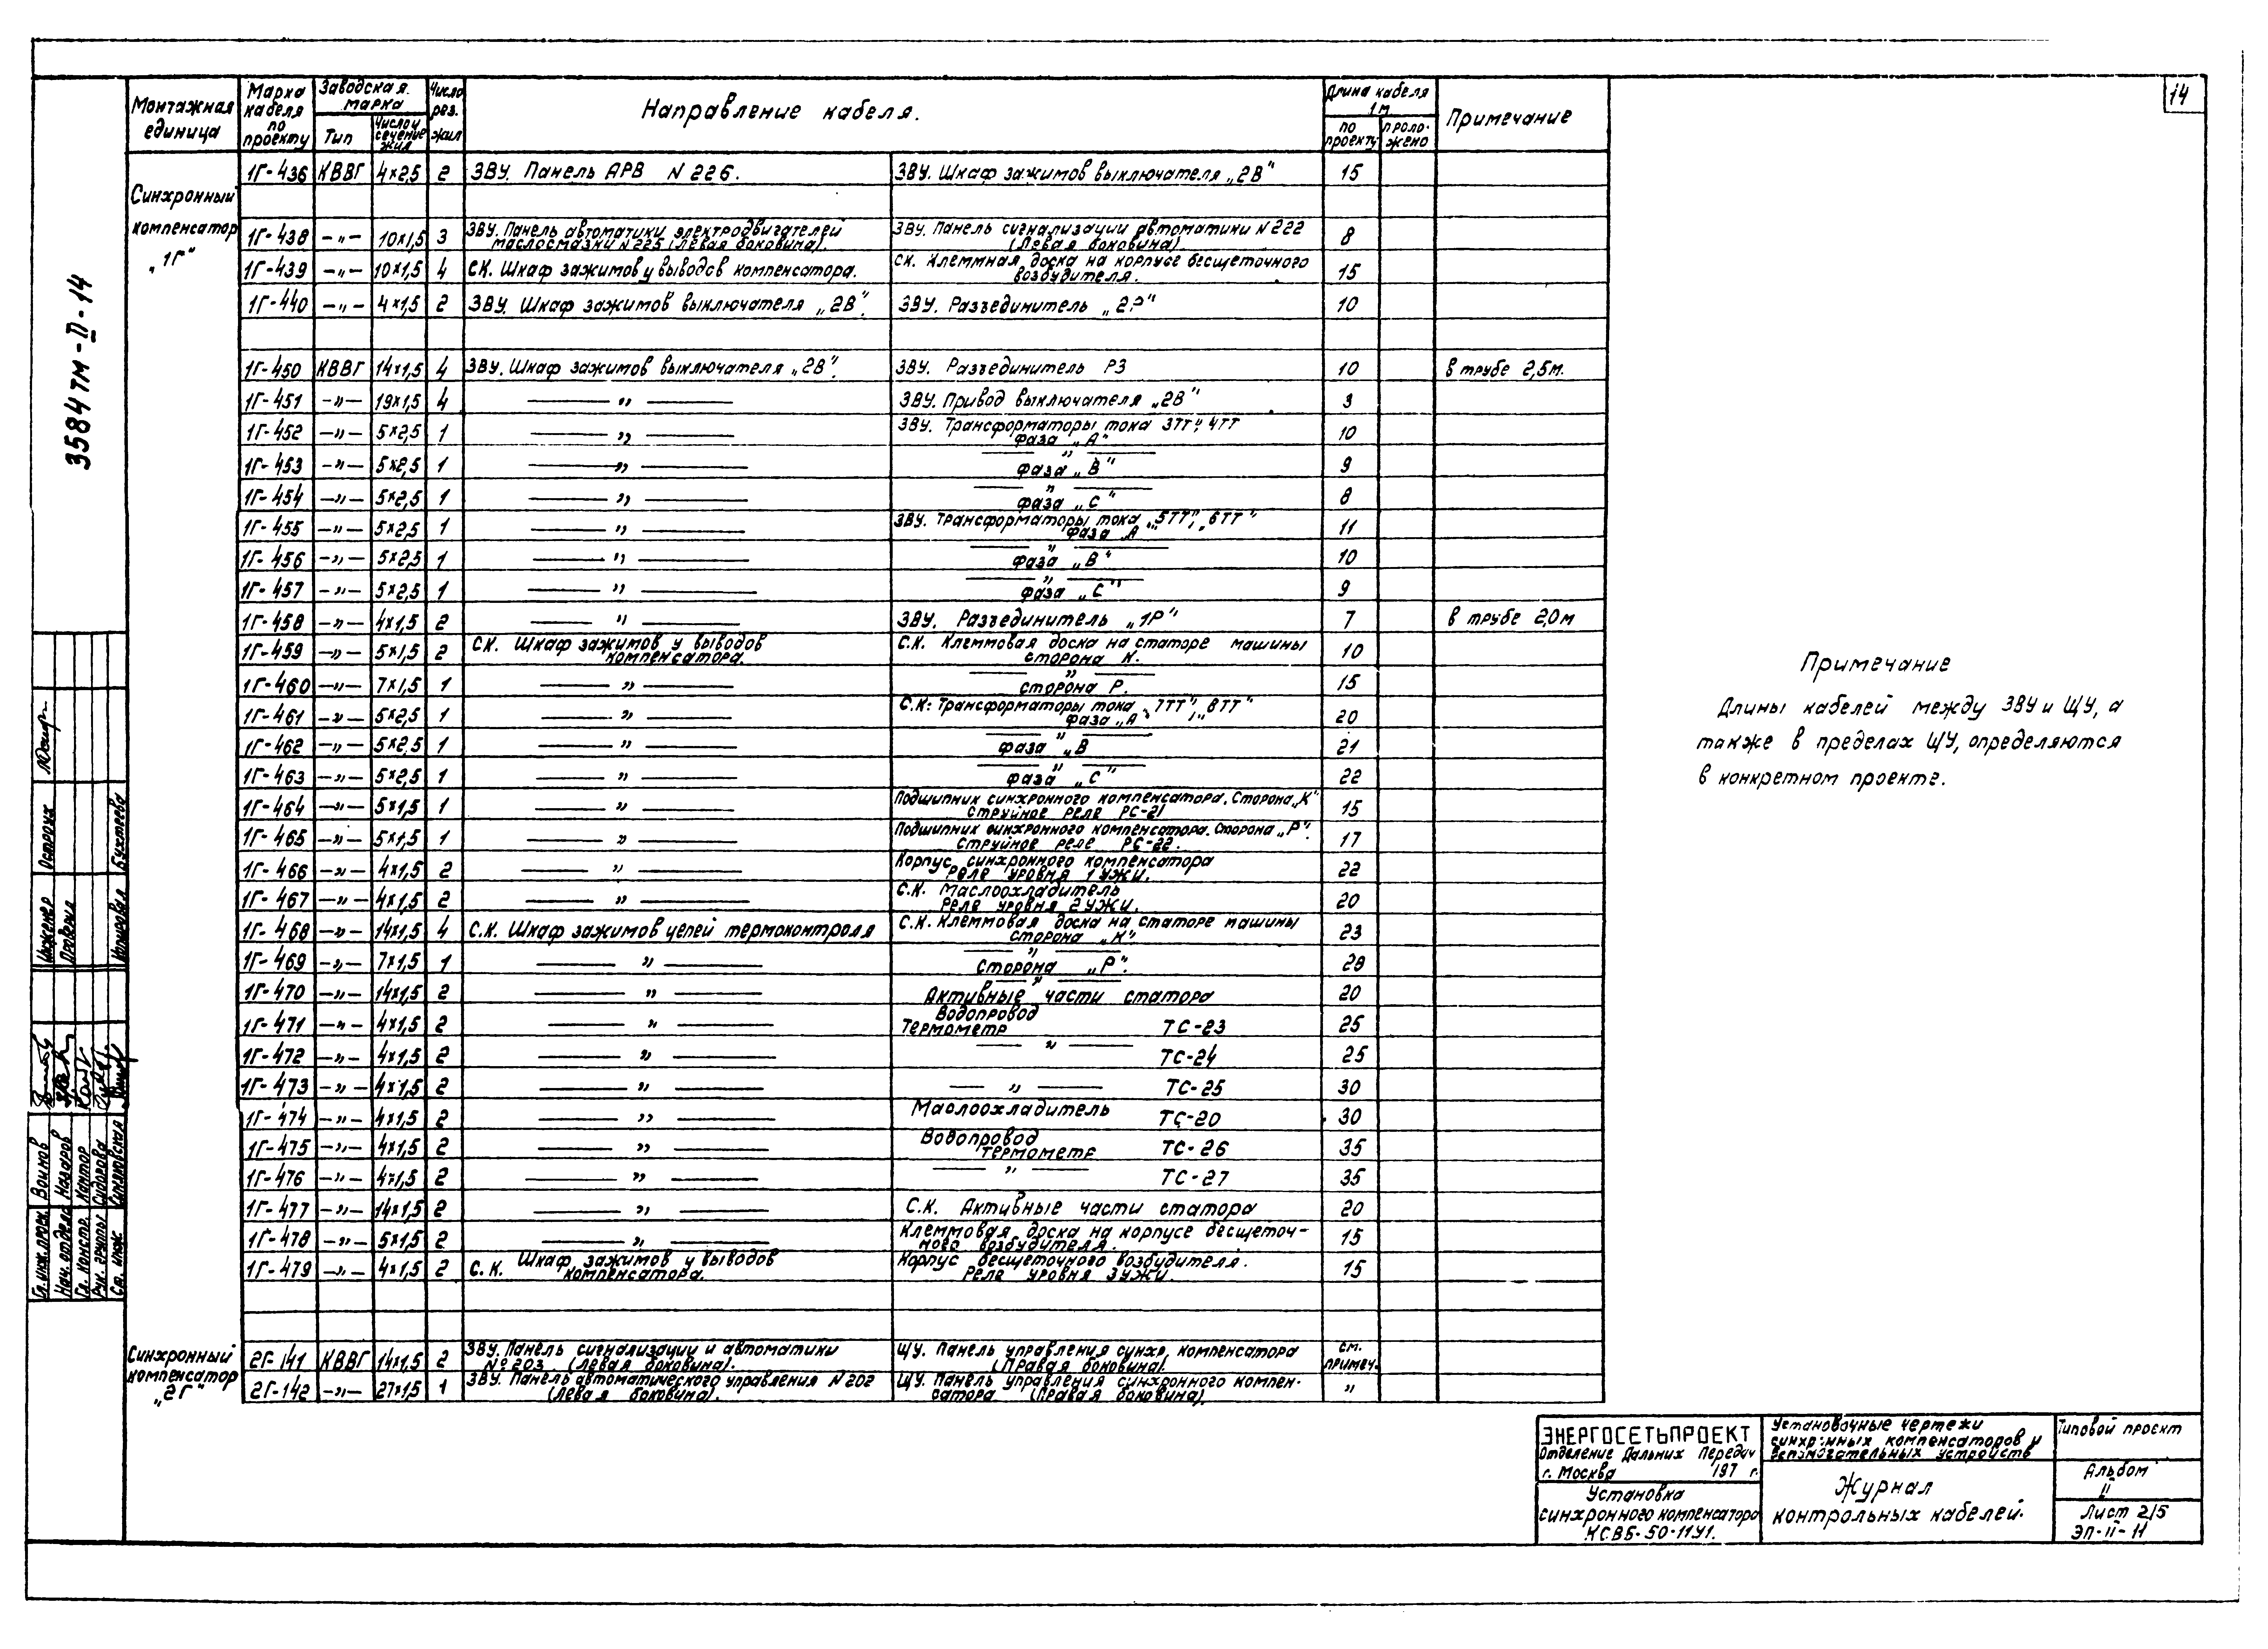 14
3584тм-II-14
Монтажная единица
Марка кабеля по проекту
Заводская марка
Тип
Число и сечение жил
Число рез. жил
Направление кабеля.
Длина кабеля 1 м
по проекту
проложено
Примечание
Синхронный компенсатор „1Г"
1Г-436 КВВГ 4×2,5 2 ЗВУ. Панель АРВ N 226. ЗВУ. Шкаф зажимов выключателя „2В" 15
1Г-438 —„— 10×1,5 3 ЗВУ. Панель автоматики электродвигателей маслосмазки N 225 (левая боковина). ЗВУ. Панель сигнализации автоматики N 222 (Левая боковина) 8
1Г-439 —„— 10×1,5 4 СК. Шкаф зажимов у выводов компенсатора. СК. Клеммная доска на корпусе бесщеточного возбудителя. 15
1Г-440 —„— 4×1,5 2 ЗВУ. Шкаф зажимов выключателя „2В". ЗВУ. Разъединитель „2Р" 10
1Г-450 КВВГ 14×1,5 4 ЗВУ. Шкаф зажимов выключателя „2В". ЗВУ. Разъединитель РЗ 10 в трубе 2,5м.
1Г-451 —„— 19×1,5 4 —„— ЗВУ. Привод выключателя „2В" 3
1Г-452 —„— 5×2,5 1 —„— ЗВУ. Трансформаторы тока 3ТТ", 4ТТ фаза „А" 10
1Г-453 —„— 5×2,5 1 —„— —„— фаза „В" 9
1Г-454 —„— 5×2,5 1 —„— —„— фаза „С" 8
1Г-455 —„— 5×2,5 1 —„— ЗВУ. Трансформаторы тока „5ТТ", „6ТТ" фаза А 11
1Г-456 —„— 5×2,5 1 —„— —„— фаза „В" 10
1Г-457 —„— 5×2,5 1 —„— —„— фаза „С" 9
1Г-458 —„— 4×1,5 2 —„— ЗВУ. Разъединитель „1Р" 7 в трубе 2,0м
1Г-459 —„— 5×1,5 2 СК. Шкаф зажимов у выводов компенсатора. С.К. Клеммовая доска на статоре машины сторона К. 10
1Г-460 —„— 7×1,5 1 —„— —„— сторона Р. 15
1Г-461 —„— 5×2,5 1 —„— С.К: Трансформаторы тока „7ТТ", „8ТТ" фаза „А" 20
1Г-462 —„— 5×2,5 1 —„— —„— фаза „В 21
1Г-463 —„— 5×2,5 1 —„— —„— фаза „С" 22
1Г-464 —„— 5×1,5 1 —„— Подшипник синхронного компенсатора. Сторона „К" струйное реле РС-21 15
1Г-465 —„— 5×1,5 1 —„— Подшипник синхронного компенсатора. сторона „Р". струйное реле РС-22. 17
1Г-466 —„— 4×1,5 2 —„— Корпус синхронного компенсатора реле уровня 1 УЖИ. 22
1Г-467 —„— 4×1,5 2 —„— С.К. Маслоохладитель реле уровня 2УЖИ. 20
1Г-468 —„— 14×1,5 4 С.К. Шкаф зажимов цепей термоконтроля С.К. Клеммовая доска на статоре машины сторона „К" 23
1Г-469 —„— 7×1,5 1 —„— —„— сторона „Р". 28
1Г-470 —„— 14×1,5 2 —„— —„— Активные части статора 20
1Г-471 —„— 4×1,5 2 —„— Водопровод Термометр ТС-23 25
1Г-472 —„— 4×1,5 2 —„— —„— ТС-24 25
1Г-473 —„— 4×1,5 2 —„— —„— ТС-25 30
1Г-474 —„— 4×1,5 2 —„— Маслоохладитель ТС-20 30
1Г-475 —„— 4×1,5 2 —„— Водопровод термометр ТС-26 35
1Г-476 —„— 4×1,5 2 —„— —„— ТС-27 35
1Г-477 —„— 14×1,5 2 —„— С.К. Активные части статора 20
1Г-478 —„— 5×1,5 2 —„— Клеммовая доска на корпусе бесщеточного возбудителя. 15
1Г-479 —„— 4×1,5 2 С.К. Шкаф зажимов у выводов компенсатора. Корпус бесщеточного возбудителя. Реле уровня 3УЖИ. 15
Синхронный компенсатор „2Г"
2Г-141 КВВГ 14×1,5 2 ЗВУ. Панель сигнализации и автоматики № 203 (левая боковина). ЩУ. Панель управления синхр. компенсатора (Правая боковина). см. примеч.
2Г-142 —„— 27×1,5 1 ЗВУ. Панель автоматического управления N 202 (левая боковина). ЩУ. Панель управления синхронного компенсатора (Правая боковина) „
Примечание
Длины кабелей между ЗВУ и ЩУ, а
также в пределах ЩУ, определяются
в конкретном проекте.
Инженер Остроух
Проверил
Копировал Бухтеева
Гл. инж. прек. Воинов
Нач. отдела Назаров
Гл. констр. Кантор
Рук. группы Сидорова
Ст. инж.
ЭНЕРГОСЕТЬПРОЕКТ
Отделение Дальних Передач
г. Москва 197 г.
Установка
синхронного компенсатора
КСВБ-50-11У1.
Установочные чертежи
синхронных компенсаторов и
вспомогательных устройств
Журнал
контрольных кабелей.
Типовой проект
Альбом
II
Лист 2/5
ЭП-II-11